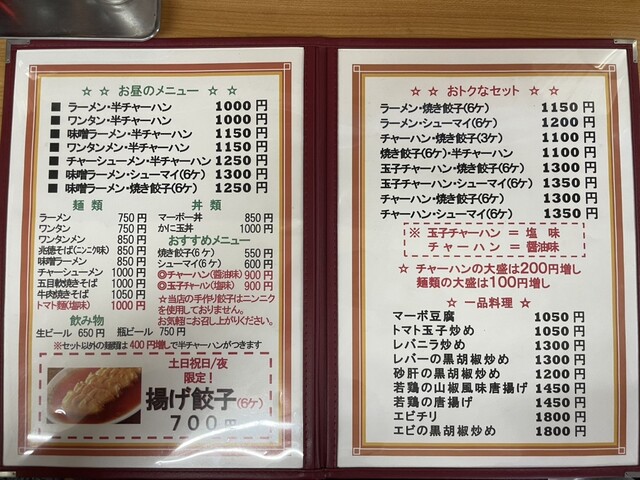 ☆ ☆ お昼のメニュー ☆ ☆
■ ラーメン・半チャーハン 1000円
■ ワンタン・半チャーハン 1000円
■ 味噌ラーメン・半チャーハン 1150円
■ ワンタンメン・半チャーハン 1150円
■ チャーシューメン・半チャーハン 1250円
■ 味噌ラーメン・シューマイ(6ケ) 1300円
■ 味噌ラーメン・焼き餃子(6ケ) 1250円
麺 類
ラーメン 750円
ワンタン 750円
ワンタンメン 850円
兆徳そば(ニンニク味) 850円
味噌ラーメン 850円
チャーシューメン 1000円
五目軟焼きそば 1000円
牛肉焼きそば 1050円
トマト麺(塩味) 1000円
丼 類
マーボー丼 850円
かに玉丼 1000円
おすすめメニュー
焼き餃子(6ケ) 550円
シューマイ(6ケ) 600円
◎チャーハン(醤油味) 900円
◎玉子チャーハン(塩味) 900円
☆当店の手作り餃子はニンニク
を使用しておりません。
お気軽にお召し上がりください。
飲み物
生ビール 650円 瓶ビール 750円
※セット以外の麺類は400円増しで半チャーハンがつきます
土日祝日/夜
限定!
揚げ餃子(6ケ)
700円
☆ ☆ おトクなセット ☆ ☆
ラーメン・焼き餃子(6ケ) 1150円
ラーメン・シューマイ(6ケ) 1200円
チャーハン・焼き餃子(3ケ) 1100円
焼き餃子(6ケ)・半チャーハン 1100円
玉子チャーハン・焼き餃子(6ケ) 1300円
玉子チャーハン・シューマイ(6ケ) 1350円
チャーハン・焼き餃子(6ケ) 1300円
チャーハン・シューマイ(6ケ) 1350円
※ 玉子チャーハン = 塩 味
チャーハン = 醤油味
☆ チャーハンの大盛は200円増し
麺類の大盛は100円増し
☆ 一品料理 ☆
マーボ豆腐 1050円
トマト玉子炒め 1050円
レバニラ炒め 1300円
レバーの黒胡椒炒め 1300円
砂肝の黒胡椒炒め 1200円
若鶏の山椒風味唐揚げ 1450円
若鶏の唐揚げ 1450円
エビチリ 1800円
エビの黒胡椒炒め 1800円